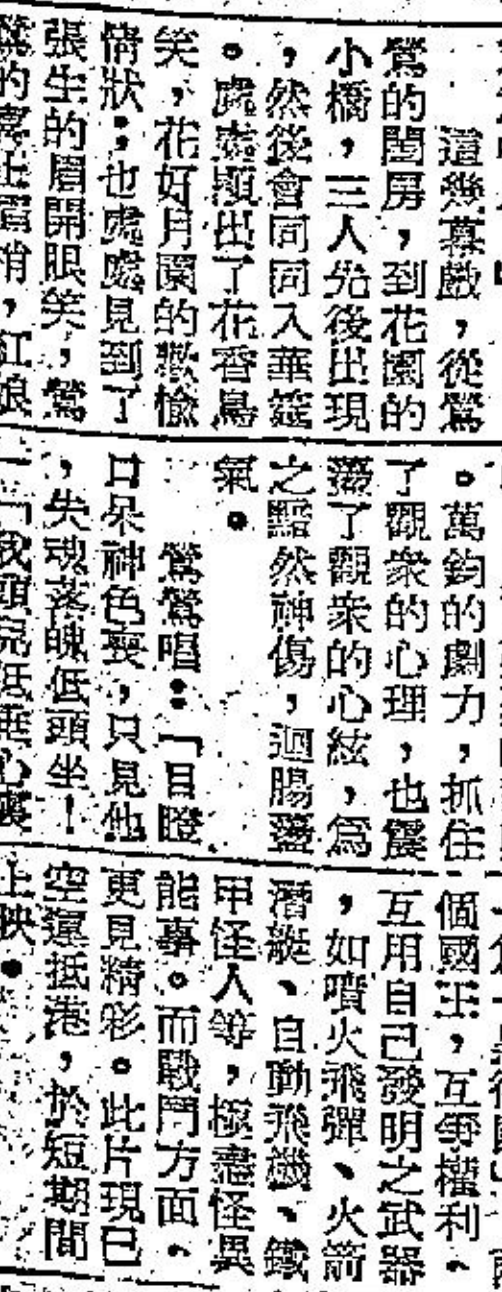 這幾幕戲，從鶯
鶯的閨房，到花園的
小橋，三人先後出現
，然後會同同入華筵
。處處顯出了花香鳥
笑，花好月圓的歡愉
情狀；也處處見到了
張生的眉開眼笑，鶯
鶯的喜上眉梢，紅娘
。萬鈞的劇力，抓住
了觀衆的心理，也震
盪了觀衆的心絃，爲
之黯然神傷，迴腸盪
氣。
鶯鶯唱：「目瞪
口呆神色喪，只見他
，失魂落魄低頭坐！
「我頭兒低垂心裏
個國王，互爭權利。
互用自己發明之武器
，如噴火飛彈、火箭
潛艇、自動飛機、鐵
甲怪人等，極盡怪異
能事。而戰鬥方面。
更見精彩。此片現已
空運抵港，於短期間
上映。